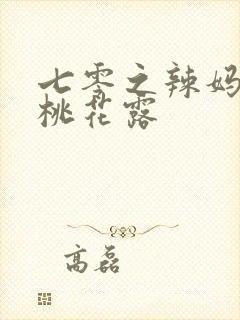 七零之辣妈
桃花露
高磊